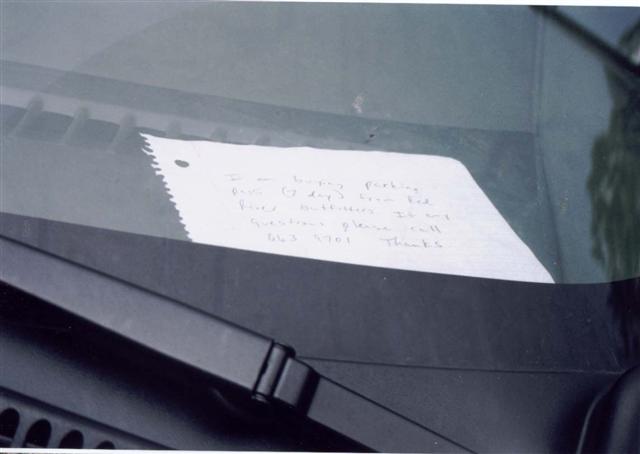 I am buying parking
pass (7 day) from Red
River Outfitters If any
questions please call
663 9701 Thanks